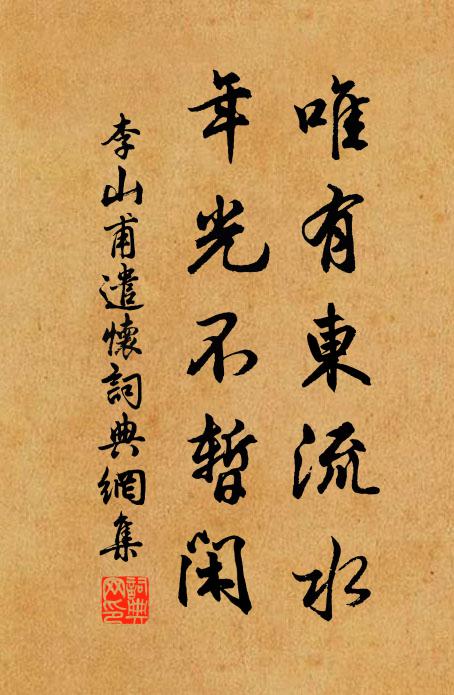 唯有東流水
年光不暫閑
李山甫遣懷詞典網集
詞典
网印